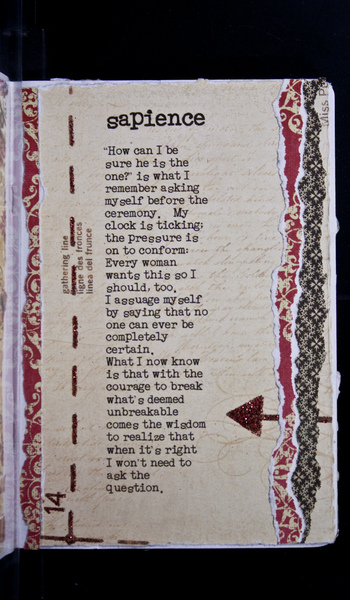 sapience
"How can I be
sure he is the
one?" is what I
remember asking
myself before the
ceremony. My
clock is ticking;
the pressure is
on to conform:
Every woman
wants this so I
should, too.
I assuage myself
by saying that no
one can ever be
completely
certain.
What I now know
is that with the
courage to break
what's deemed
unbreakable
comes the wisdom
to realize that
when it's right
I won't need to
ask the
question.
gathering line
ligne des fronces
linea del frunce
14
Miss